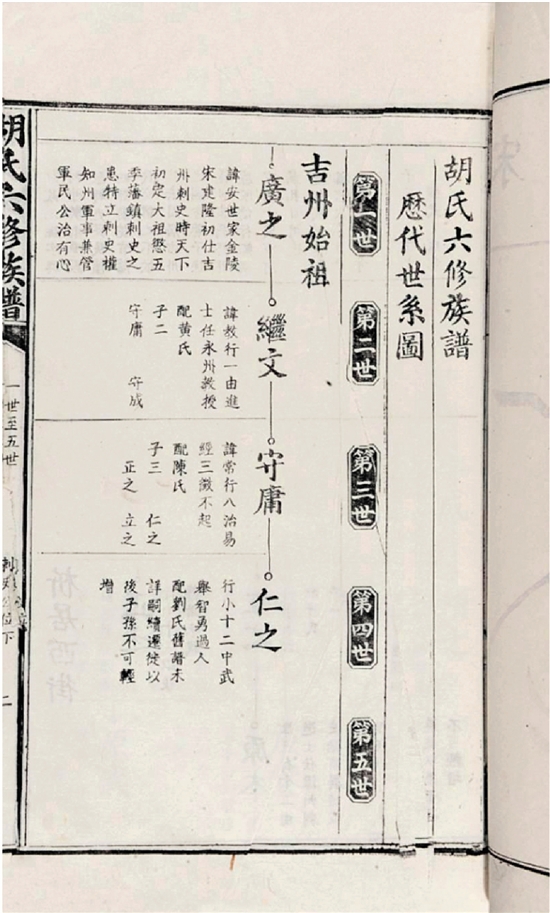 胡氏六修族譜
歷代世系圖
第一世
第二世
第三世
第四世
第五世
吉州始祖
廣之
繼文
守庸
仁之
諱安世家金陵
宋建隆初仕吉
州刺史時天下
初定大祖懲五
季藩鎮刺史之
患特立刺史權
知州軍事兼管
軍民公治有心
諱教行一由進
士任永州教授
配黃氏
子二
守庸 守成
諱常行八治易
經三徵不起
配陳氏
子三 仁之
正之 立之
行小十二中武
舉智勇過人
配劉氏舊譜未
詳嗣續遷徙以
後子孫不可輕
增
胡氏六修族譜
一世至五世
二